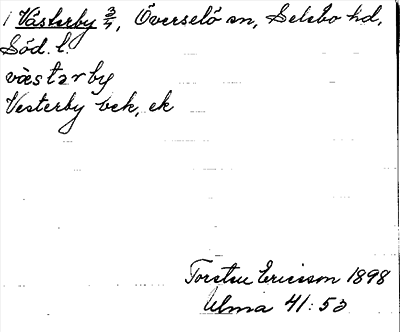 1 Västerby 3/4, Överselö sn, Selebo hd,
Söd. l.
västərby
Vesterby bek, ek
Torsten Ericsson 1898
Ulma 41:53